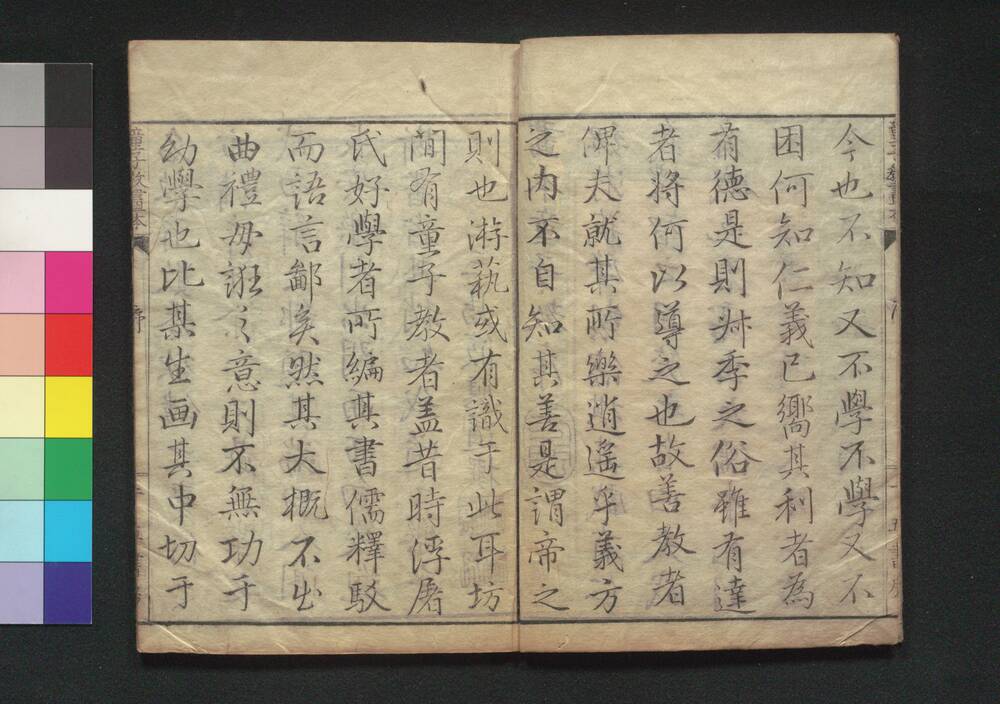 今也不知又不學不學又不
困何知仁義已嚮其利者為
有德是則叔季之俗雖有達
者將何以導之也故善教者
俾夫就其所樂逍遙乎義方
之内不自知其善是謂帝之
則也游藝或有識于此耳坊
間有童子教者盖昔時浮屠
氏好學者所編其書儒釋駁
而語言鄙矣然其大概不出
曲禮毋誑之意則不無功于
幼學也比某生画其中切于
童子教畫本
序